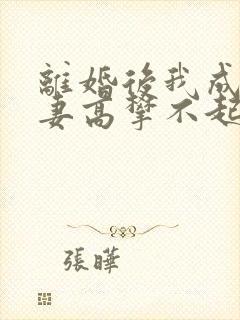 離婚後我成
妻高攀不起
張曄